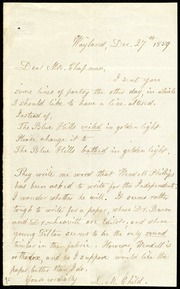 Wayland, Dec. 27th 1859
Dear Mr. Chapman,
I sent you
some lines of poetry the other day, in which
I should like to have a line altered.
Instead of,
The Blue Hills veiled in golden light
Please change it to
The Blue Hills bathed in golden light
They write me word that Wendell Phillips
has been asked to write for the Independent.
I wonder whether he will. It seems rather
to write for a paper, where Dr. Bacon
and Dr. are Editors, and where
young Tilton seems to be the only sound
timber in the fabric. However, Wendell is
orthodox, and so I suppose would like the
paper better than I do.
Yours cordially
L. M. Child.